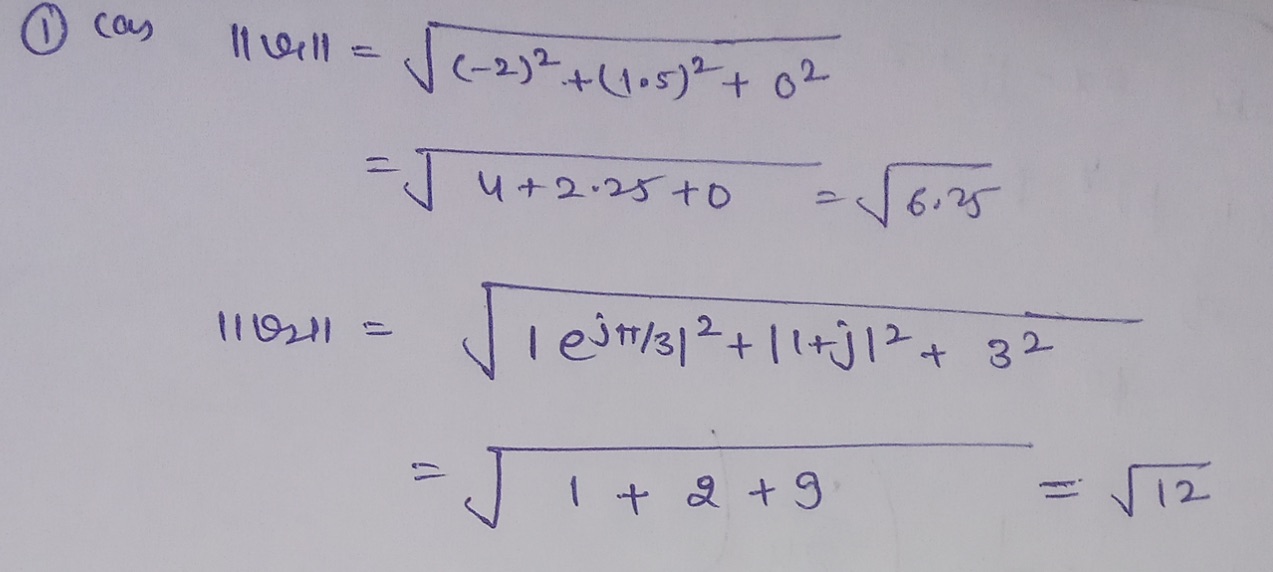 ① (a) ||v₁|| = √((-2)² + (1.5)² + 0²)
= √(4 + 2.25 + 0) = √6.25
||v₂|| = √(|e^{jπ/3}|² + |1+j|² + 3²)
= √(1 + 2 + 9) = √12